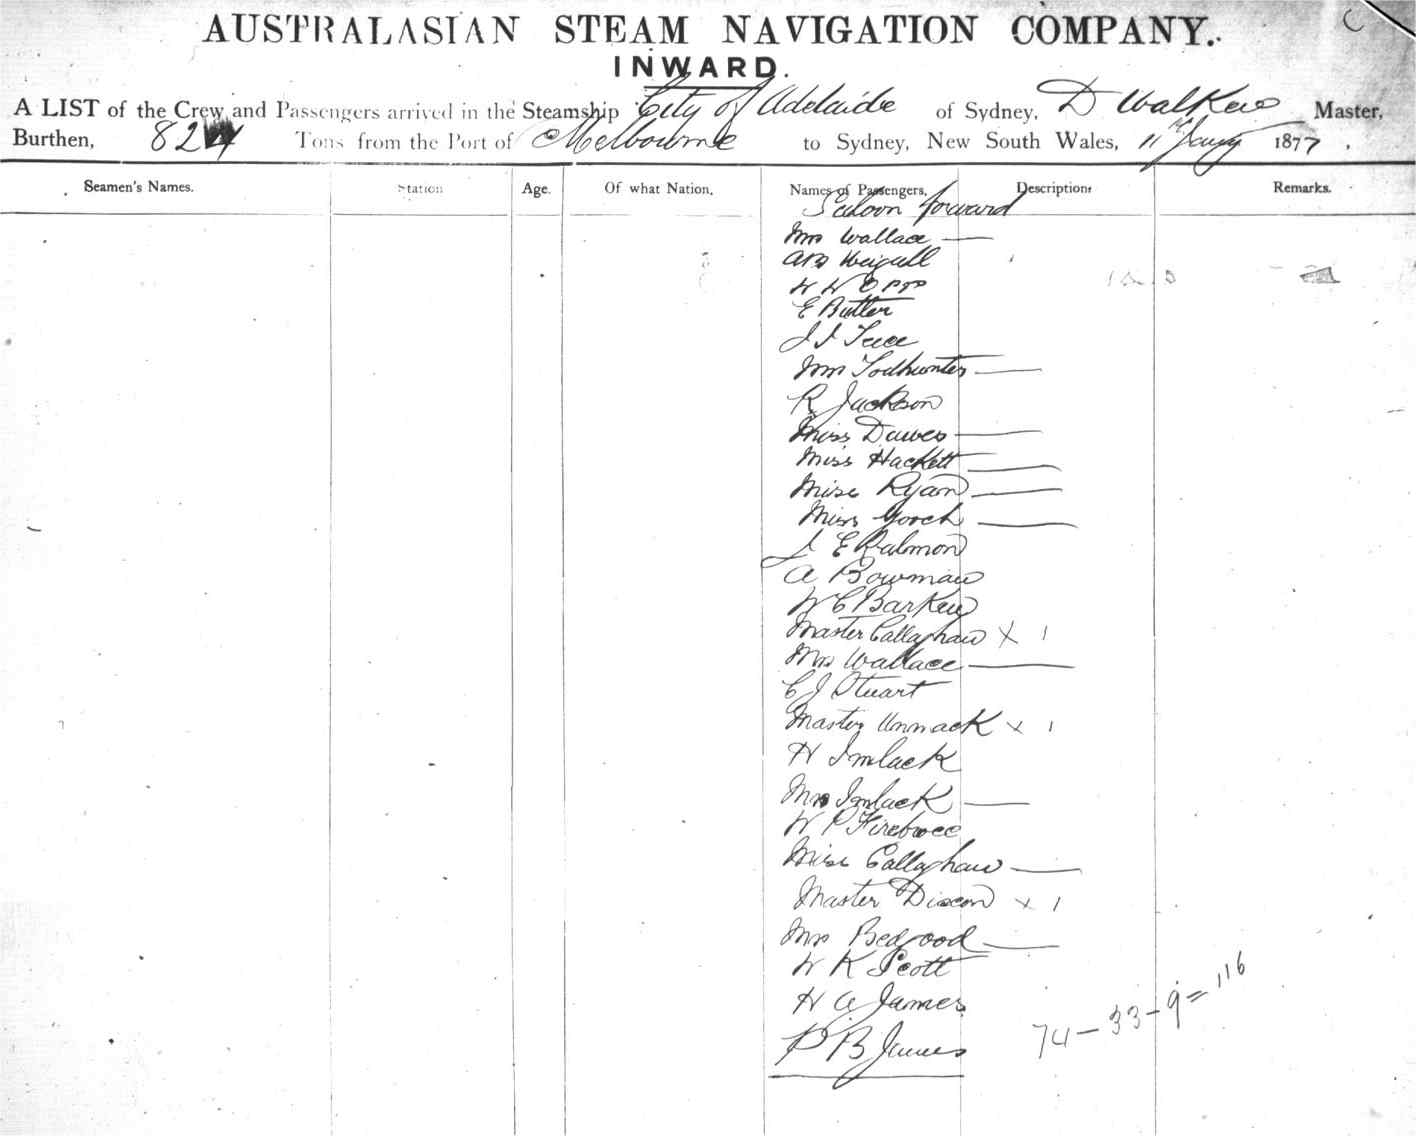 C
AUSTRALASIAN STEAM NAVIGATION COMPANY.
INWARD.
A LIST of the Crew and Passengers arrived in the Steamship City of Adelaide of Sydney, D Walker Master,
Burthen, 824 Tons from the Port of Melbourne to Sydney, New South Wales, 11th Jany 1877.
Seamen's Names. Station Age. Of what Nation. Names of Passengers. Descriptions Remarks.
Saloon forward
Mrs Wallace —
W W
E Butler
J J
Mrs Todhunter —
R Jackson
Miss Dawes —
Miss Hackett —
Miss Ryan —
Miss —
J E
A Bowman
W C Barker
Master Callaghan x 1
Mrs Wallace —
C J Stuart
Master Unmack x 1
H Imlack
Mrs Imlack —
W P
Miss Callaghan —
Master Dixon x 1
Mrs Bedgood —
W K Scott
H A James
P B James
74-33-9=116